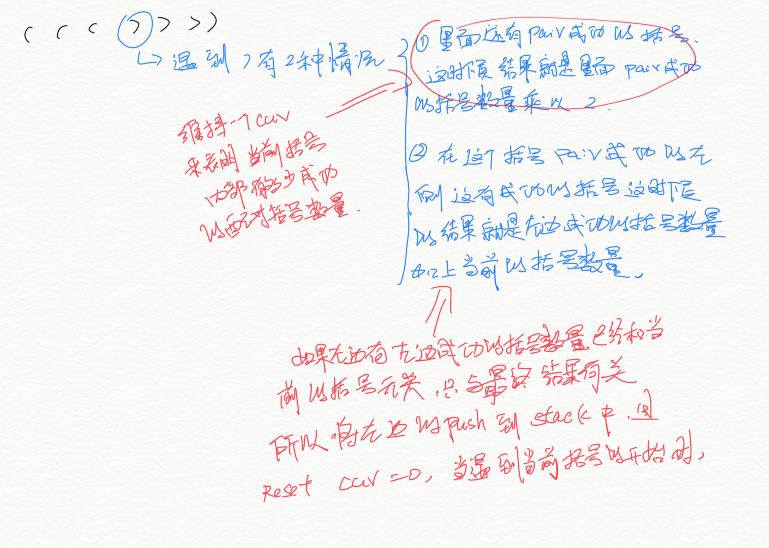 ( ( ( ) ) ) )
遇到 ) 有2种情况
① 里面还有 pair 成功的括号.
这时候结果就是里面 pair 成功
的括号数量乘以 2.
② 在这个括号 pair 成功的左
侧还有成功的括号 这时候
的结果就是左边成功的括号数量
加上当前的括号数量.
维持一个 curr
来表明当前括号
内部有多少成功
的配对括号数量.
如果左边有左边成功的括号数量已经和当
前的括号无关.只与最终结果有关
所以将左边的push到 stack中.
reset curr=0, 当遇到当前括号的开始时,